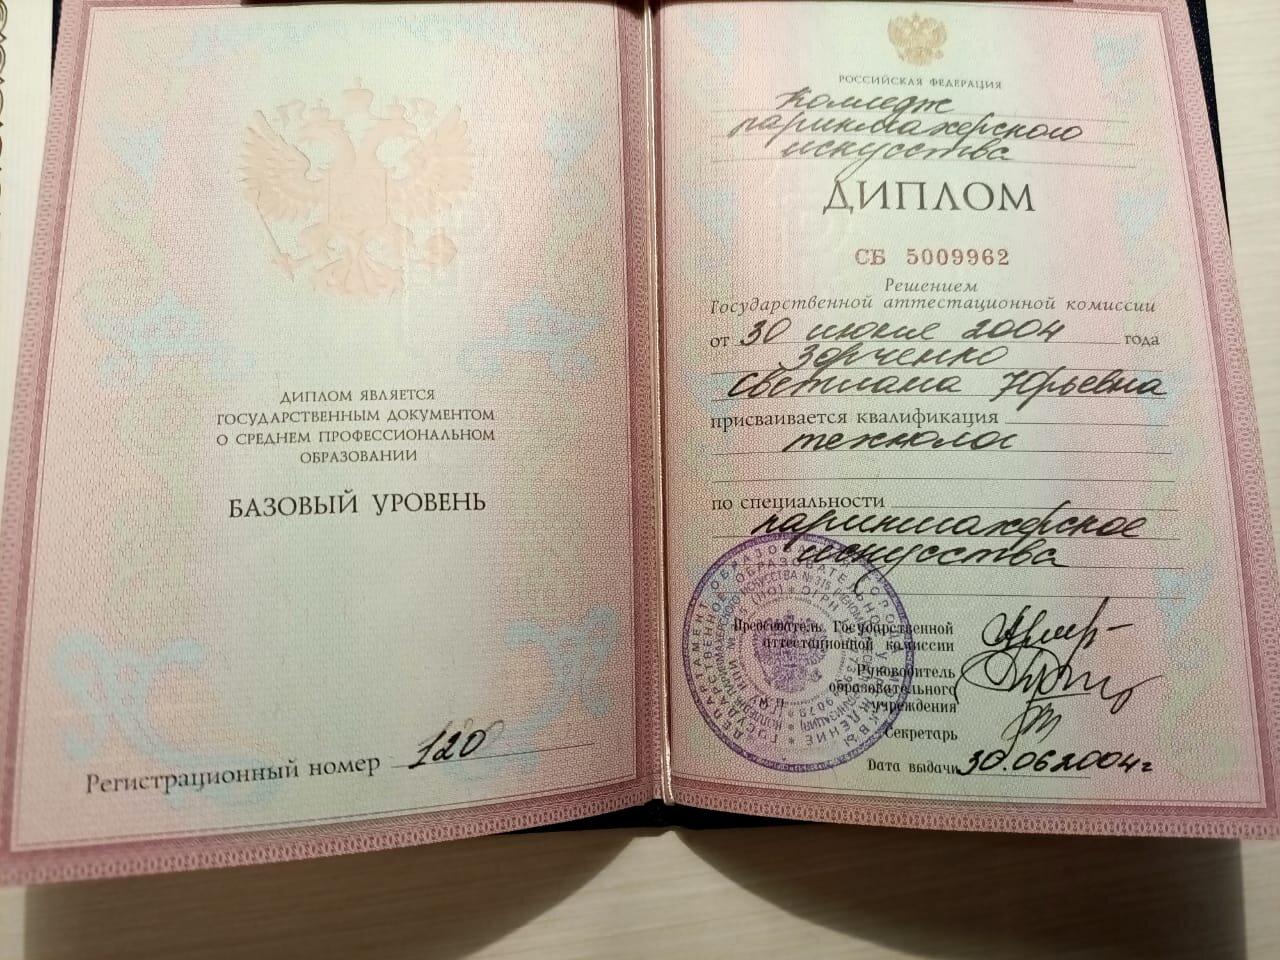 ДИПЛОМ ЯВЛЯЕТСЯ
ГОСУДАРСТВЕННЫМ ДОКУМЕНТОМ
О СРЕДНЕМ ПРОФЕССИОНАЛЬНОМ
ОБРАЗОВАНИИ
БАЗОВЫЙ УРОВЕНЬ
Регистрационный номер 120
РОССИЙСКАЯ ФЕДЕРАЦИЯ
Колледж
парикмахерского
искусства
ДИПЛОМ
СБ 5009962
Решением
Государственной аттестационной комиссии
от 30 июня 2004 года
Зорченко
Светлана Юрьевна
присваивается квалификация
технолог
по специальности
парикмахерское
искусства
Председатель Государственной
аттестационной комиссии
Руководитель
образовательного
учреждения
Секретарь
Дата выдачи 30.06.2004г